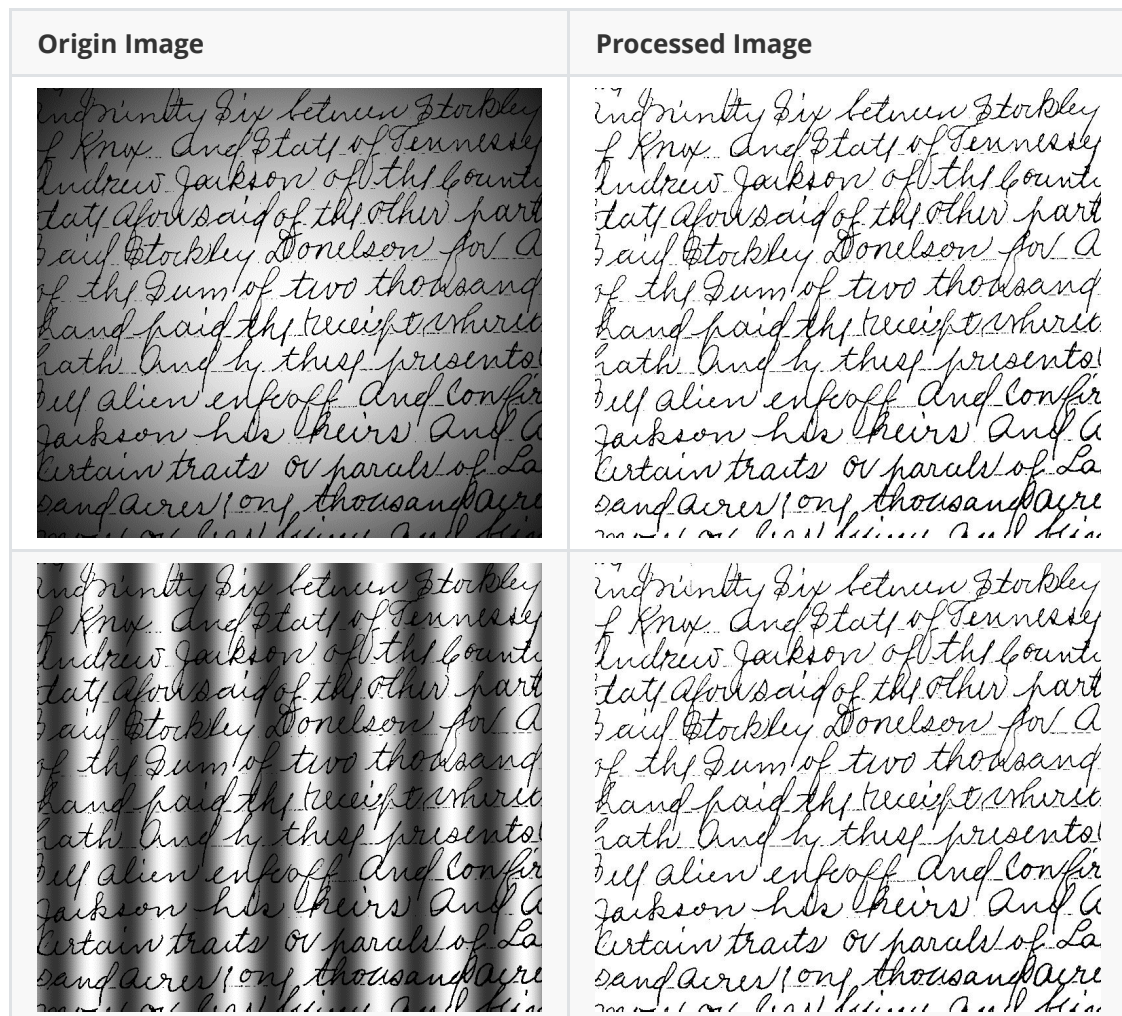 Origin Image
Processed Image
Ninty Six between Stockley
Knox And State of Tennessey
Andrew Jackson of the Count
tate aforesaid of the other part
aid Stockley Donelson for A
of the Sum of two thousand
hand paid the receipt where
hath And by these presents
ell alien enfeoff And Confir
Jackson his heirs And A
Certain traits or parcels of La
sand acres one thousand acre
Ninty Six between Stockley
Knox And State of Tennessey
Andrew Jackson of the Count
tate aforesaid of the other part
aid Stockley Donelson for A
of the Sum of two thousand
hand paid the receipt where
hath And by these presents
ell alien enfeoff And Confir
Jackson his heirs And A
Certain traits or parcels of La
sand acres one thousand acre
Ninty Six between Stockley
Knox And State of Tennessey
Andrew Jackson of the Count
tate aforesaid of the other part
aid Stockley Donelson for A
of the Sum of two thousand
hand paid the receipt where
hath And by these presents
ell alien enfeoff And Confir
Jackson his heirs And A
Certain traits or parcels of La
sand acres one thousand acre
Ninty Six between Stockley
Knox And State of Tennessey
Andrew Jackson of the Count
tate aforesaid of the other part
aid Stockley Donelson for A
of the Sum of two thousand
hand paid the receipt where
hath And by these presents
ell alien enfeoff And Confir
Jackson his heirs And A
Certain traits or parcels of La
sand acres one thousand acre